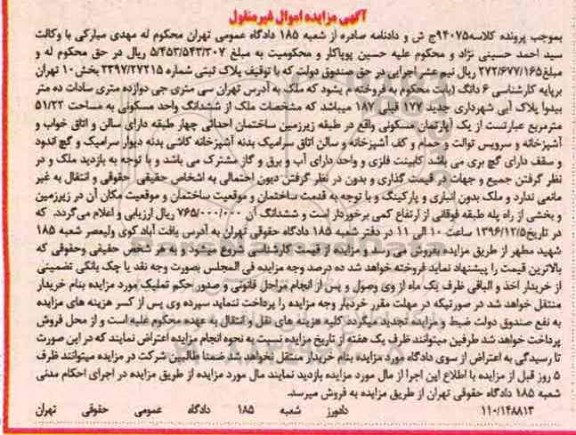 آگهی مزایده اموال غیرمنقول
بموجب پرونده کلاسه ۹۴۰۷۵ج ش و دادنامه صادره از شعبه ۱۸۵ دادگاه عمومی تهران محکوم له مهدی مبارکی با وکالت
سید احمد حسینی نژاد و محکوم علیه حسین پویاکار و محکومیت به مبلغ ۵/۴۵۳/۵۴۳/۳۰۷ ریال در حق محکوم له و
مبلغ ۲۷۲/۶۷۷/۱۶۵ ریال نیم عشر اجرایی در حق صندوق دولت که با توقیف پلاک ثبتی شماره ۲۳۹۷/۲۷۲۱۵ بخش ۱۰ تهران
برپایه کارشناسی ۶ دانگ (بابت محکوم به فروخته م یشود که ملک به آدرس تهران سی متری جی دوازده متری سادات ده متر
بیدوا پلاک آبی شهرداری جدید ۱۷۷ قبلی ۱۸۷ میباشد که مشخصات ملک از ششدانگ واحد مسکونی به مساحت ۵۱/۲۲
مترمربع عبارتست از یک آپارتمان مسکونی واقع در طبقه زیرزمین ساختمان احداثی چهار طبقه دارای سالن و اتاق خواب و
آشپزخانه و سرویس توالت و حمام و کف آشپزخانه و سالن اتاق سرامیک بدنه آشپزخانه کاشی بدنه دیوار سرامیک و گچ اندود
و سقف دارای گچ بری می باشد کابینت فلزی و واحد دارای آب و برق و گاز مشترک می باشد و با توجه به بازدید ملک و در
نظر گرفتن جمیع و جهات در قیمت گذاری و بدون در نظر گرفتن دیون احتمالی به اشخاص حقیقی حقوقی و انتقال به غیر
مانعی ندارد و ملک بدون انباری و پارکینگ و با توجه به قدمت ساختمان و موقعیت ساختمان و موقعیت مکان آن در زیرزمین
و بخشی از راه پله طبقه فوقانی از ارتفاع کمی برخوردار است و ششدانگ آن ۷۶۵/۰۰۰/۰۰۰ ریال ارزیابی و اعلام می‌گردد که
در تاریخ ۱۳۹۶/۱۲/۵ ساعت ۱۰ الی ۱۱ در دفتر شعبه ۱۸۵ دادگاه حقوقی تهران به آدرس یافت آباد کوی ولیعصر شعبه ۱۸۵
شهید مطهر از طریق مزایده بفروش می رسد و مزایده از قیمت کارشناسی شروع میشود و به هر شخص حقیقی وحقوقی که
بالاترین قیمت را پیشنهاد نماید فروخته خواهد شد ده درصد وجه مزایده فی المجلس بصورت وجه نقد یا چک بانکی تضمینی
از خریدار اخذ و الباقی ظرف یک ماه از وی وصول و پس از انجام مراحل قانونی و صدور حکم تملیک مورد مزایده بنام خریدار
منتقل خواهد شد در صورتیکه در مهلت مقرر خریدار وجه مزایده را پرداخت ننماید سپرده وی پس از کسر هزینه های مزایده
به نفع صندوق دولت ضبط و مزایده تجدید میگردد کلیه هزینه های نقل و انتقال به عهده محکوم علیه است و از محل فروش
پرداخت خواهد شد طرفین میتوانند ظرف یک هفته از تاریخ مزایده نسبت به نحوه انجام مزایده اعتراض نمایند که در این صورت
تا رسیدگی به اعتراض از سوی دادگاه مورد مزایده بنام خریدار منتقل نخواهد شد ضمنا طالبین شرکت در مزایده میتوانند ظرف
۵ روز قبل از مزایده با اطلاع این اجرا از مال مورد مزایده بازدید نمایند مال مورد مزایده از طریق مزایده در اجرای احکام مدنی
شعبه ۱۸۵ دادگاه حقوقی تهران از طریق مزایده به فروش میرسد.
۱۱۰/۱۴۸۸۱۳ دادورز شعبه ۱۸۵ دادگاه عمومی حقوقی تهران